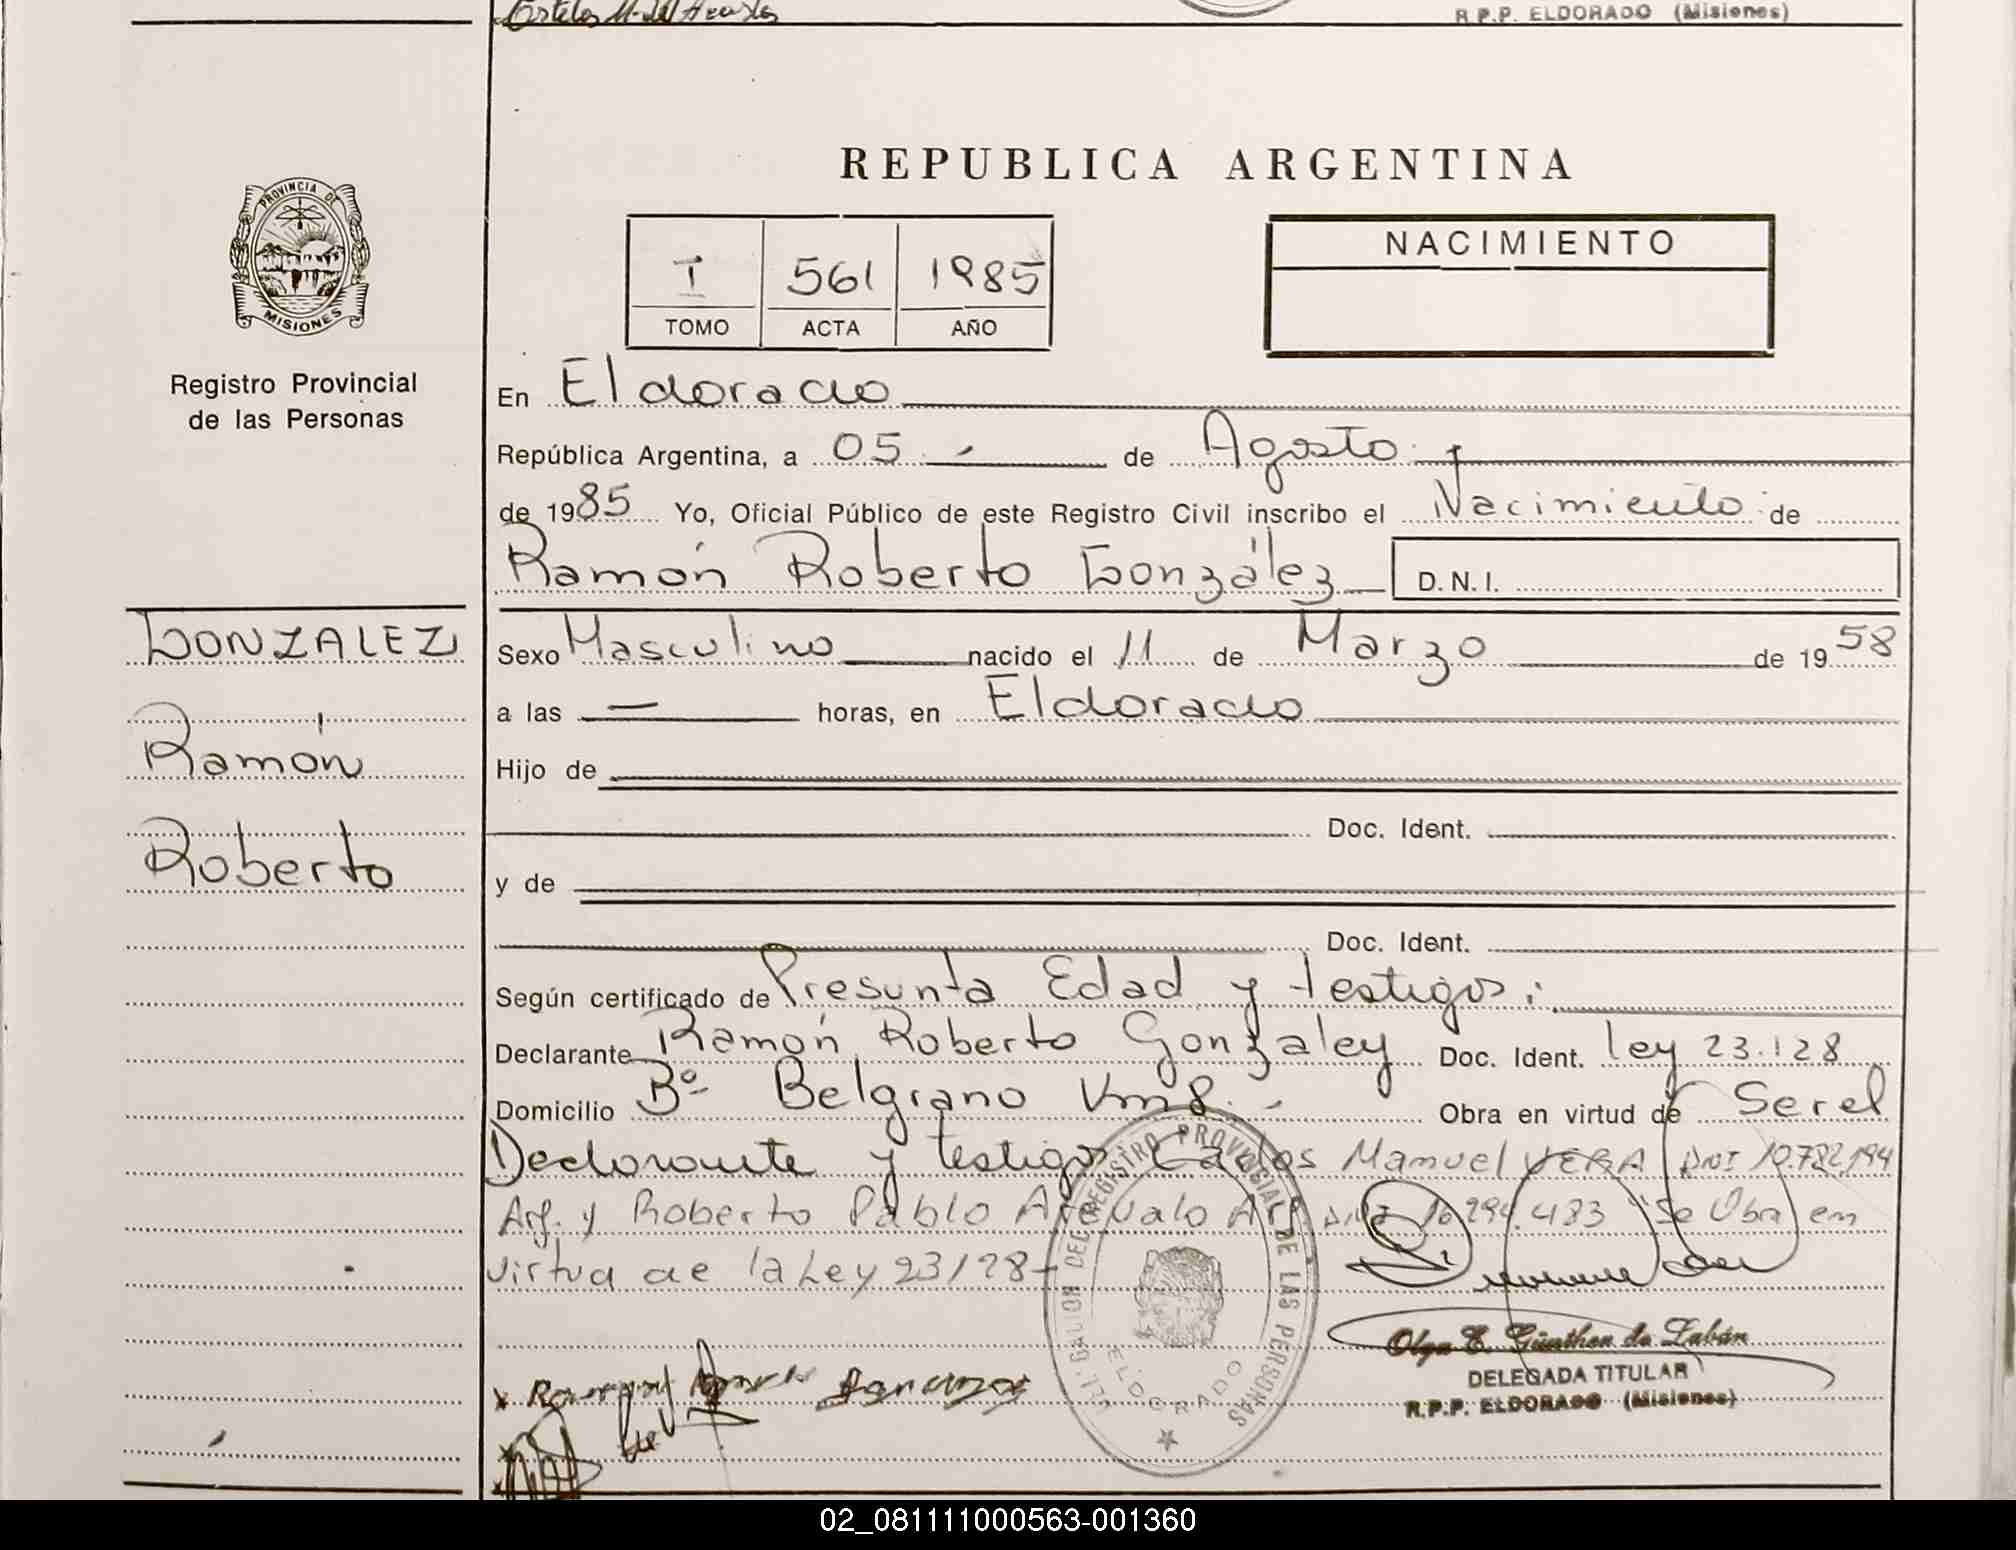 Estela M. de Acosta
R.P.P. ELDORADO (Misiones)
REPUBLICA ARGENTINA
PROVINCIA DE
MISIONES
Registro Provincial
de las Personas
I 561 1985
TOMO ACTA AÑO
NACIMIENTO
En Eldorado
República Argentina, a 05 - de Agosto
de 1985 Yo, Oficial Público de este Registro Civil inscribo el Nacimiento de
Ramón Roberto González D.N.I.
GONZALEZ
Ramón
Roberto
Sexo Masculino nacido el 11 de Marzo de 1958
a las — horas, en Eldorado
Hijo de
Doc. Ident.
y de
Doc. Ident.
Según certificado de Presunta Edad y testigos;
Declarante Ramón Roberto Gonzalez Doc. Ident. ley 23.128
Domicilio Bº Belgrano Km8. - Obra en virtud de Ser el
Declarante y testigos Carlos Manuel VERA DNI 10.782.194
Arg. y Roberto Pablo Arevalo Arg. 16.294.483 Se Obra em
virtud de la Ley 23128-
DELEGACION DEL REGISTRO PROVINCIAL DE LAS PERSONAS
ELDORADO
Olga E. Günther de Labán
DELEGADA TITULAR
R.P.P. ELDORADO (Misiones)
02_081111000563-001360